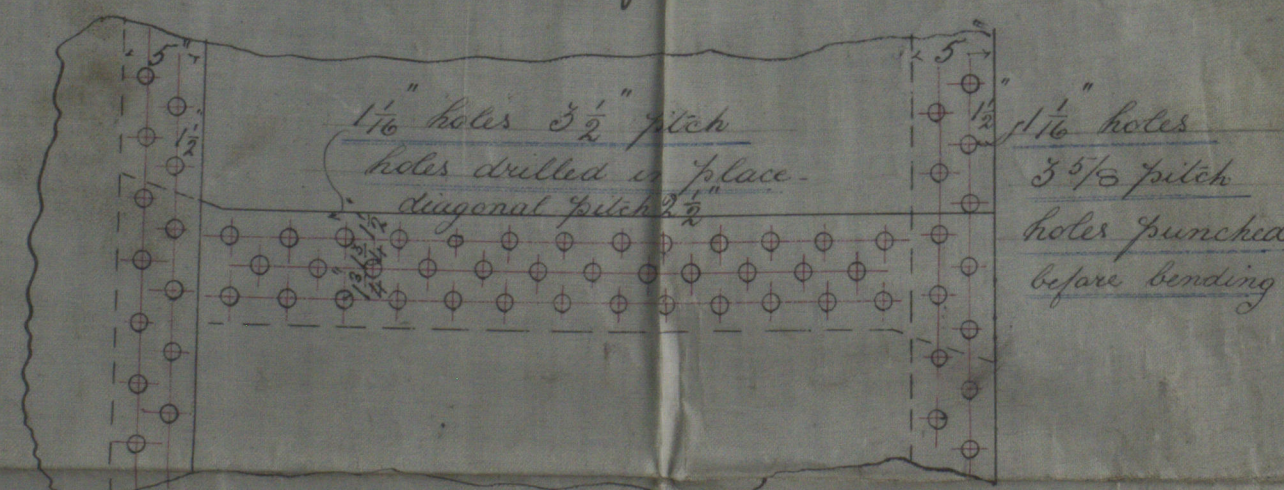 5"
1 1/16" holes 3 1/2" pitch
holes drilled in place -
diagonal pitch 2 1/2"
1 1/2"
1 1/2"
1 3/4"
1 3/4"
5"
1 1/2"
1 1/16" holes
3 5/8 pitch
holes punched
before bending